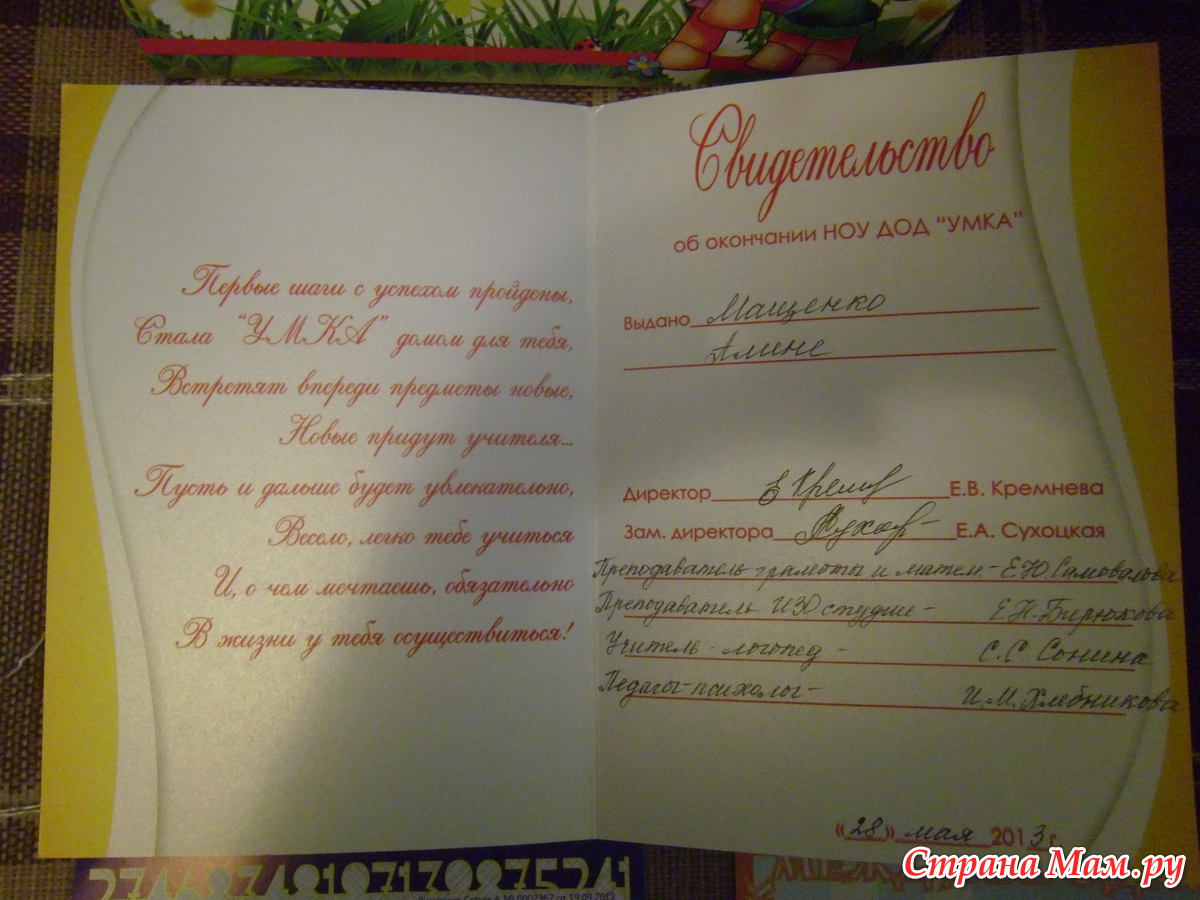 Первые шаги с успехом пройдены,
Стала "УМКА" домом для тебя,
Встретят впереди предметы новые,
Новые придут учителя...
Пусть и дальше будет увлекательно,
Весело, легко тебе учиться
И, о чем мечтаешь, обязательно
В жизни у тебя осуществиться!
Свидетельство
об окончании НОУ ДОД "УМКА"
Выдано Мащенко
Алине
Директор Е.В. Кремнева
Зам. директора Е.А. Сухоцкая
Преподаватель грамоты и матем. - Е.Ю. Самовалова
Преподаватель ИЗО студии - Е.Н. Бирюкова
Учитель - логопед - С.С. Сонина
Педагог-психолог - И.М. Хлебникова
«28» мая 2013 г.
27468748191713087524
№ 0002367 от 19.09.2012
Страна Мам.ру